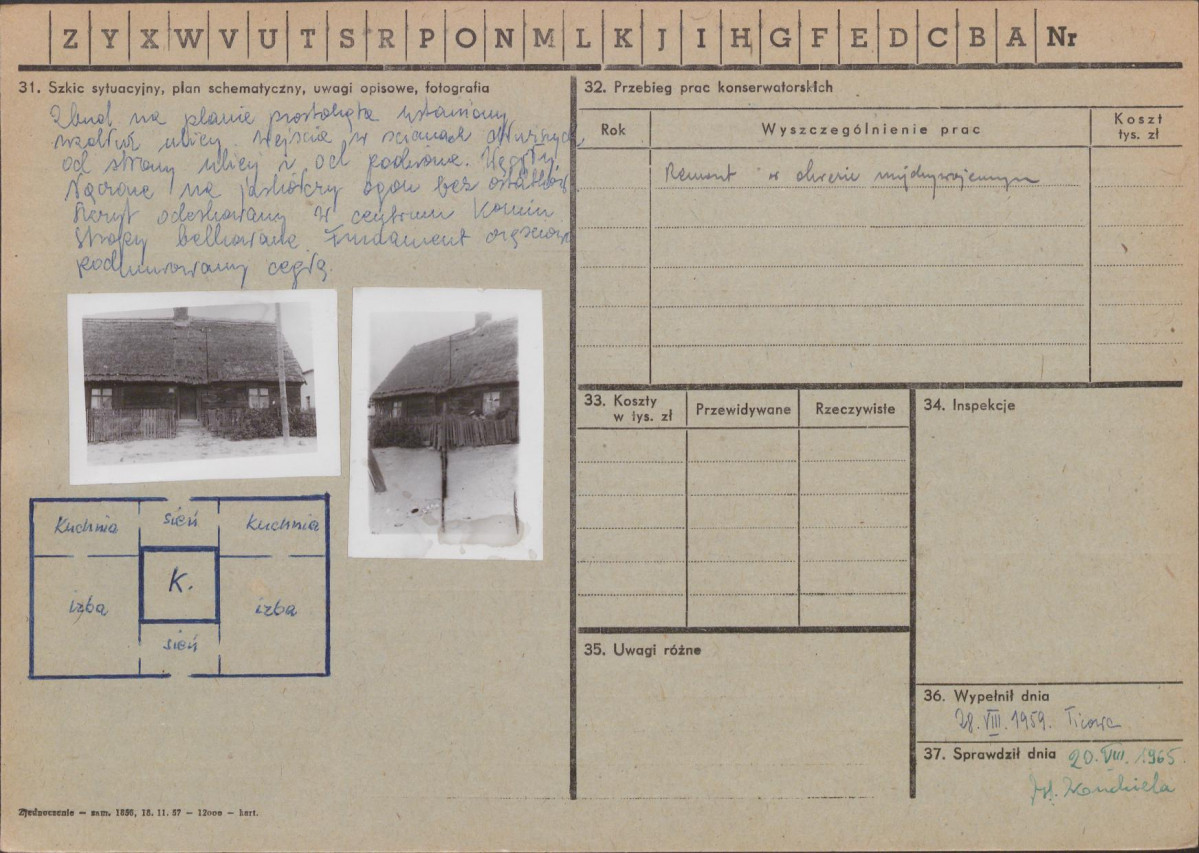 Z Y X W V U T S R P O N M L K J I H G F E D C B A Nr
31. Szkic sytuacyjny, plan schematyczny, uwagi opisowe, fotografia
Zbud. na planie prostokąta ustawiony
wzdłuż ulicy. Wejścia w ścianach dłuższych
od strony ulicy i od podwórza. Węgły
łączone na jaskółczy ogon bez ostatków
Szczyt odeskowany W centrum Komin
Stropy belkowane Fundament częściowo
podmurowany cegłą.
Kuchnia sień kuchnia
K.
izba izba
sień
Zjednoczenie — zam. 1856, 18. 11. 57 — 12000 — kart.
32. Przebieg prac konserwatorskich
Rok Wyszczególnienie prac Koszt
tys. zł
Remont w okresie międzywojennym
33. Koszty
w tys. zł Przewidywane Rzeczywiste
34. Inspekcje
35. Uwagi różne
36. Wypełnił dnia
28. VIII. 1959.
37. Sprawdził dnia 20. VIII. 1965.